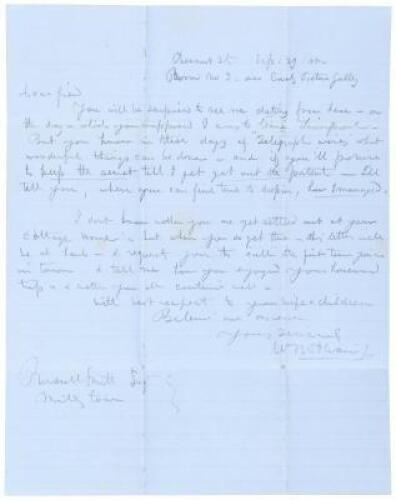 Chesnut St Sep. 29
Room No 3. over Earl's Picture Gallery
Dear friend
You will be surprised to see me dating from here - on
the day on which you supposed I was to leave Liverpool -
But you know in these days of Telegraph works what
wonderful things can be done - and if you'll promise
to keep the secret till I get out the patent - I'll
tell you, when you can find time to drop in, how I managed.
I don't know whether you are yet settled out at your
Cottage home - but when you do get this - this letter will
be at hand - & request you to call the first time you're
in town & tell me how you enjoyed your
trip & whether you all continue well -
With best respect to your wife & children
Believe me
Yours Sincerely
Russell Smith Esq
Milestown